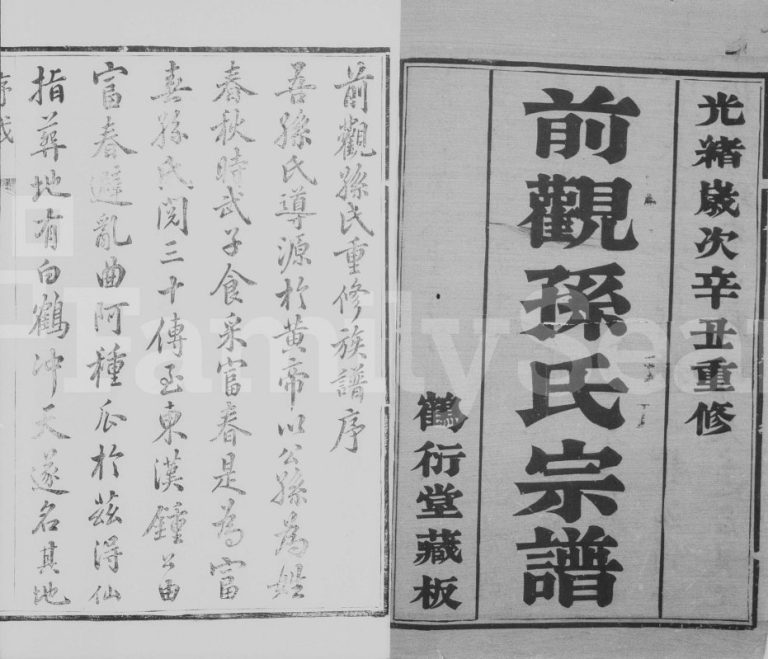 光緒歲次辛丑重修
前觀孫氏宗譜
鶴衍堂藏板
前觀孫氏重修族譜序
吾孫氏導源於黄帝以公孫為姓
春秋時武子食采富春是為富
春孫氏閱三十傳至東漢鍾公由
富春避亂曲阿種瓜於茲得仙
指葬地有白鶴冲天遂名其地
FamilySear